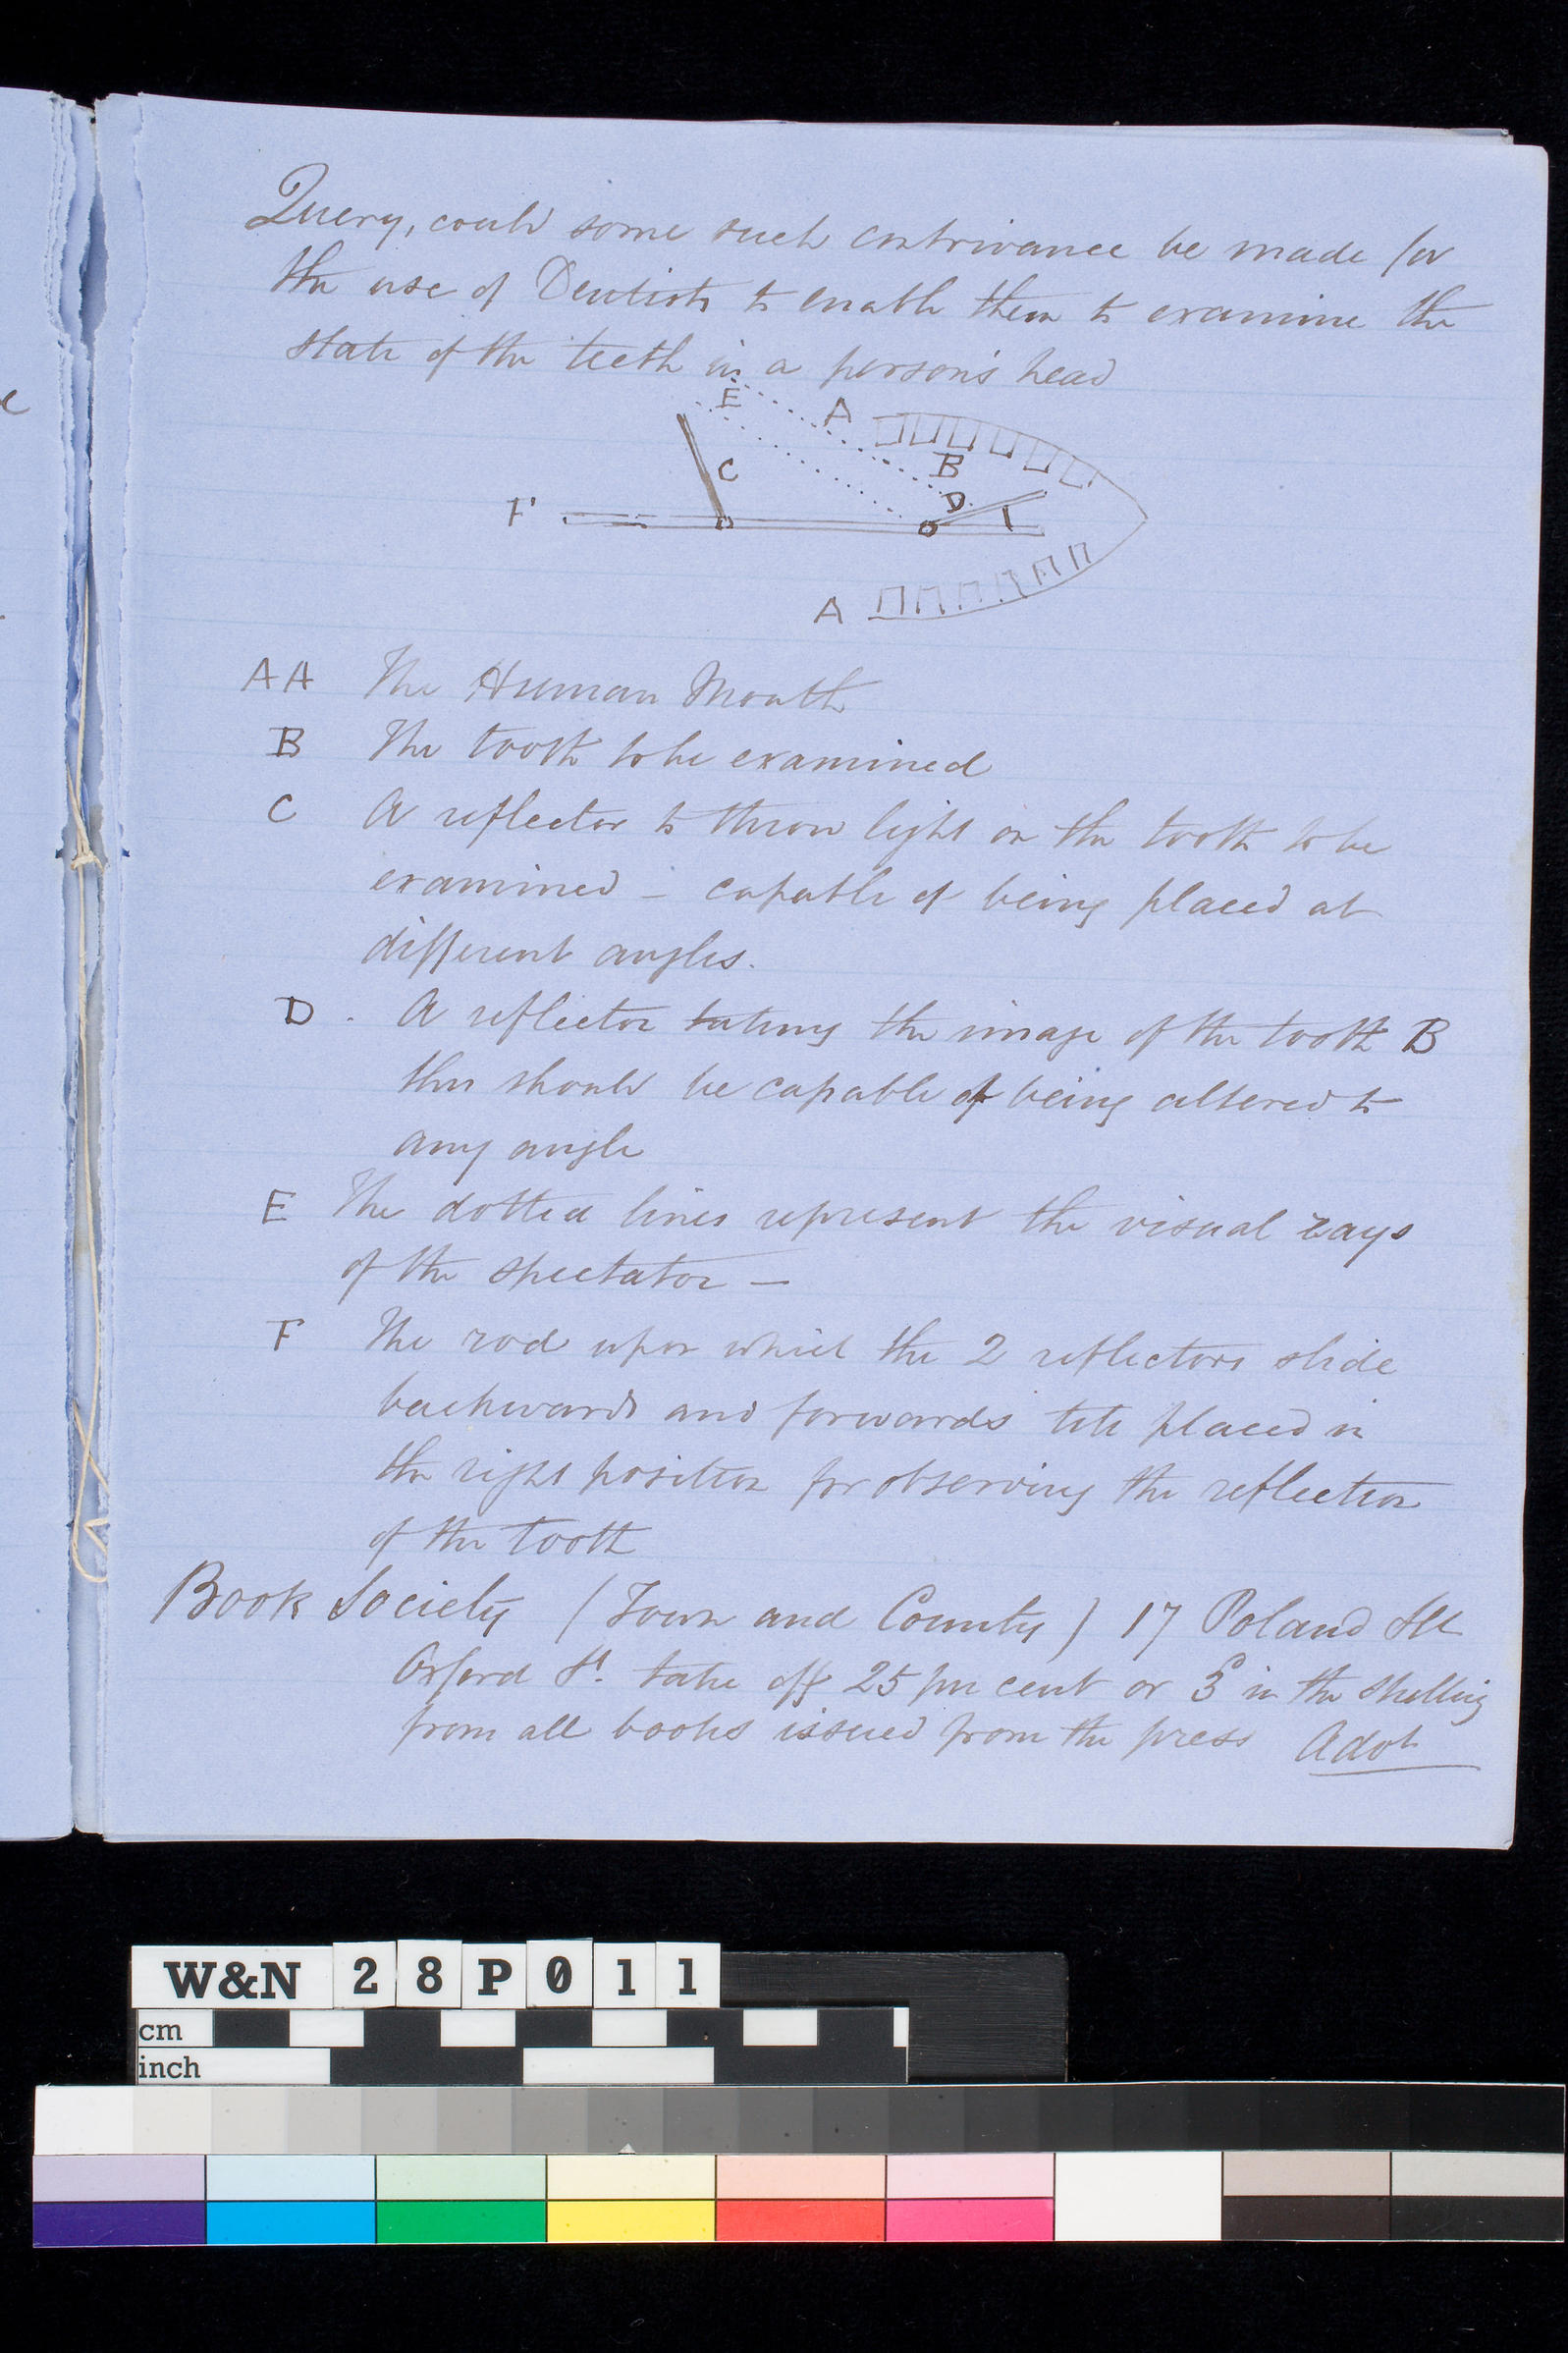 Query, could some such contrivance be made for
the use of Dentists to enable them to examine the
state of the teeth in a person's head
E
A
C
B
D
F
A
AA The Human Mouth
B The tooth to be examined
C A reflector to throw light on the tooth to be
examined – capable of being placed at
different angles.
D. A reflector taking the image of the tooth B
this should be capable of being altered to
any angle
E The dotted lines represent the visual rays
of the spectator –
F The rod upon which the 2 reflectors slide
backwards and forwards till placed in
the right position for observing the reflection
of the tooth
Book Society (Town and County) 17 Poland St
Oxford St. take off 25 per cent or 3d in the shilling
from all books issued from the press Advt
W&N 28P011
cm
inch